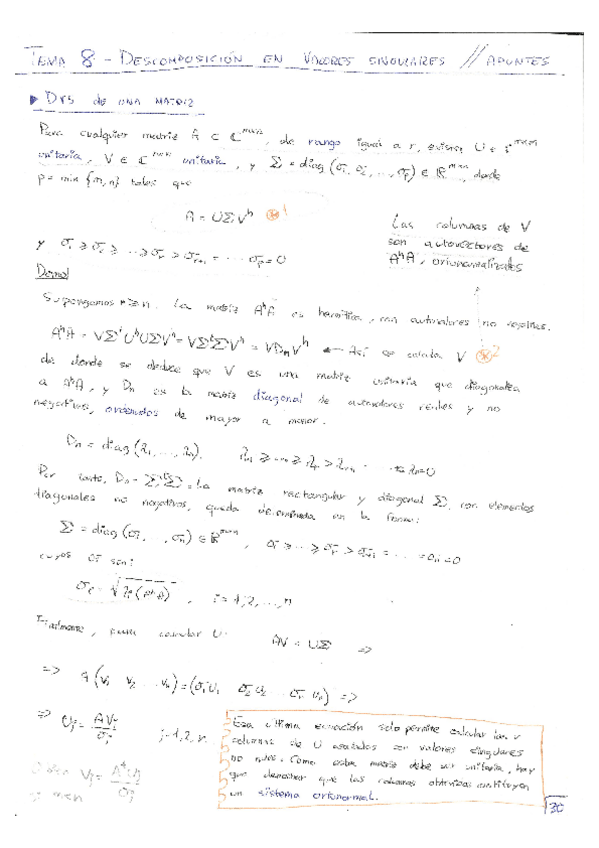 TEMA 8 - DESCOMPOSICIÓN EN VALORES SINGULARES // APUNTES
▶ DVS de UNA MATRIZ
Para cualquier matriz A ∈ ℂ^{m×n}, de rango igual a r, existe U ∈ ℂ^{m×m}
unitaria, V ∈ ℂ^{n×n} unitaria, y Σ = diag (σ₁, σ₂, ..., σₚ) ∈ ℝ^{m×n}, donde
p = min {m,n} tales que
A = UΣV^h ⊛1
Las columnas de V
son autovectores de
A^hA, ortonormalizados
y σ₁ ≥ σ₂ ≥ ... ≥ σᵣ > σᵣ₊₁ = ... σₚ = 0
Demo/
Supongamos m ≥ n. La matriz A^hA es hermítica, con autovalores no negativos.
A^hA = VΣ^tU^hUΣV^h = VΣ^tΣV^h = VDₙV^h ← Así se calcula V ⊛2
de donde se deduce que V es una matriz unitaria que diagonaliza
a A^hA, y Dₙ es la matriz diagonal de autovalores reales y no
negativos, ordenados de mayor a menor.
Dₙ = diag (λ₁, ..., λₙ). λ₁ ≥ ... ≥ λᵣ > λᵣ₊₁ = ... = λₙ = 0
Por tanto, Dₙ = Σ^tΣ. La matriz rectangular y diagonal Σ, con elementos
diagonales no negativos, queda determinada en la forma:
Σ = diag (σ₁, ..., σₙ) ∈ ℝ^{m×n}, σ₁ ≥ ... ≥ σᵣ > σᵣ₊₁ = ... = σₙ = 0
cuyos σᵢ son:
σᵢ = √λᵢ(A^hA), i = 1,2,...,n
Finalmente, para calcular U: AV = UΣ ⇒
⇒ A (v₁ v₂ ... vₙ) = (σ₁u₁ σ₂u₂ ... σₙuₙ) ⇒
⇒ uⱼ = Avⱼ/σⱼ j=1,2,r.
Esa última ecuación solo permite calcular las r
columnas de U asociadas con valores singulares
no nulos. Como esta matriz debe ser unitaria, hay
que demostrar que las columnas obtenidas constituyen
un sistema ortonormal.
vⱼ = A^huⱼ/σⱼ
30